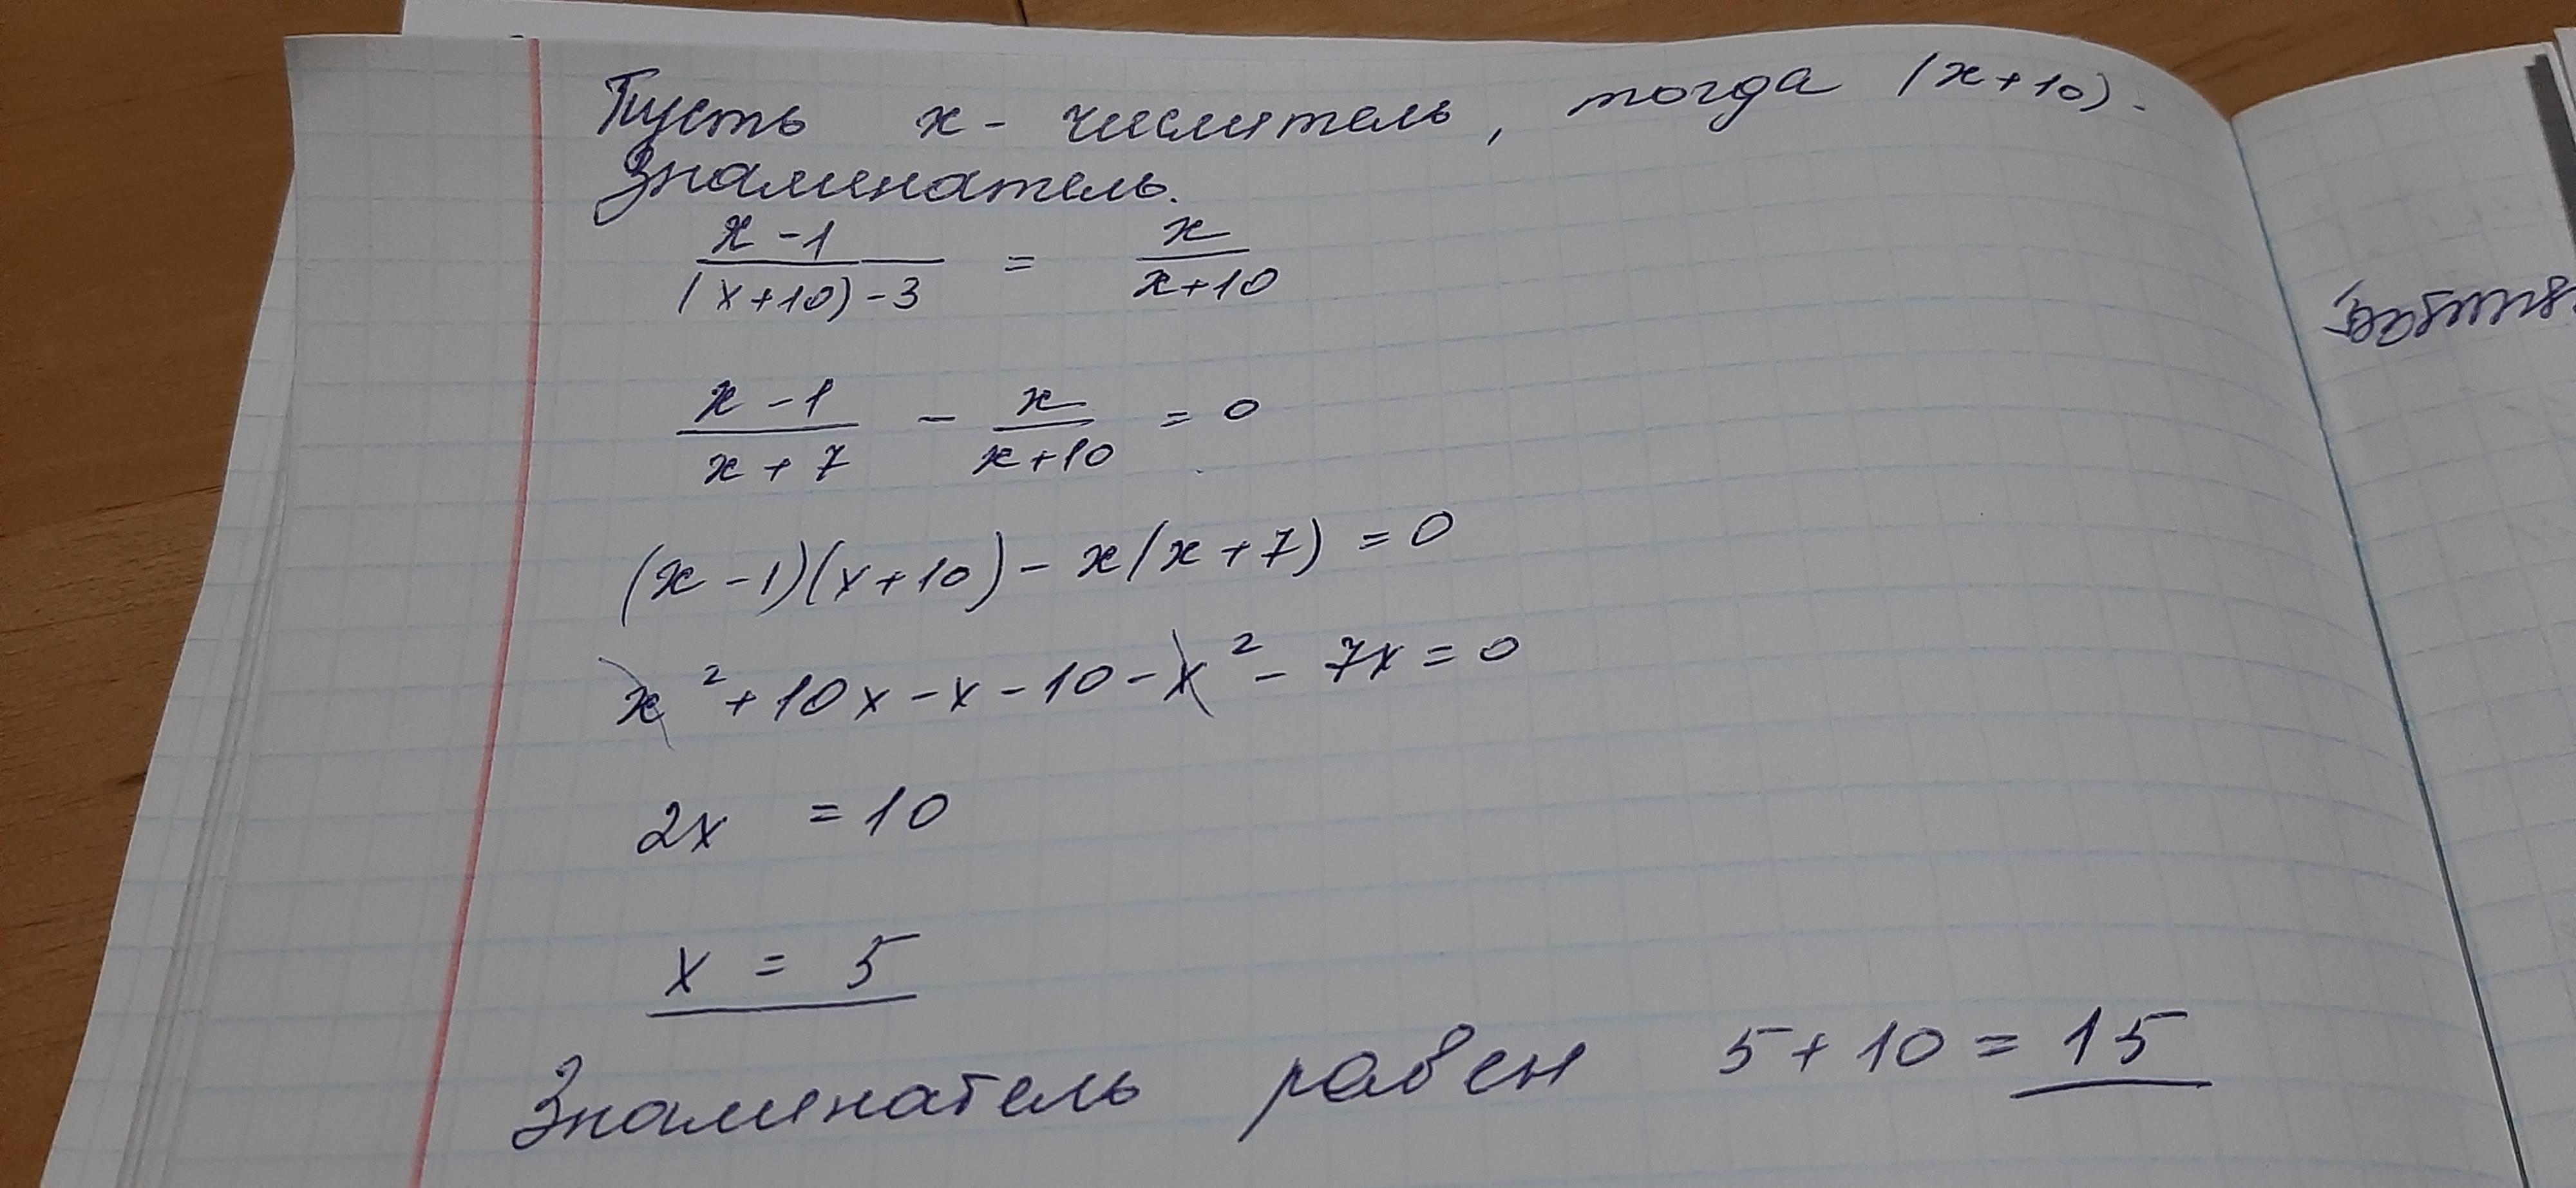 Пусть x - числитель, тогда (x+10) -
Знаменатель.
x - 1 / (x+10) - 3 = x / x+10
x - 1 / x + 7 - x / x+10 = 0
(x - 1)(x+10) - x(x+7) = 0
x² + 10x - x - 10 - x² - 7x = 0
2x = 10
x = 5
Знаменатель равен 5 + 10 = 15